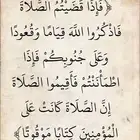 ﴿فَإِذَا قَضَيْتُمُ الصَّلَاةَ
فَاذْكُرُوا اللَّهَ قِيَامًا وَقُعُودًا
وَعَلَى جُنُوبِكُمْ فَإِذَا
اطْمَأْنَنْتُمْ فَأَقِيمُوا الصَّلَاةَ
إِنَّ الصَّلَاةَ كَانَتْ عَلَى
الْمُؤْمِنِينَ كِتَابًا مَوْقُوتًا﴾